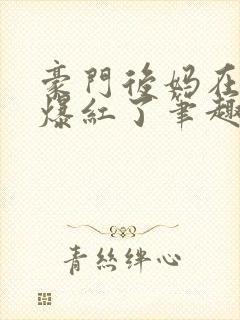 豪門後媽在
爆紅了筆趣
青絲絆心